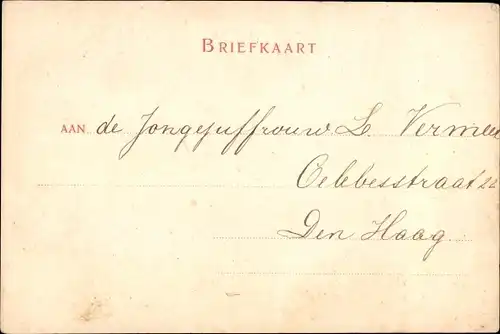 BRIEFKAART
AAN de Jongejuffrouw L. Vermeu
Celebesstraat 22
Den Haag.